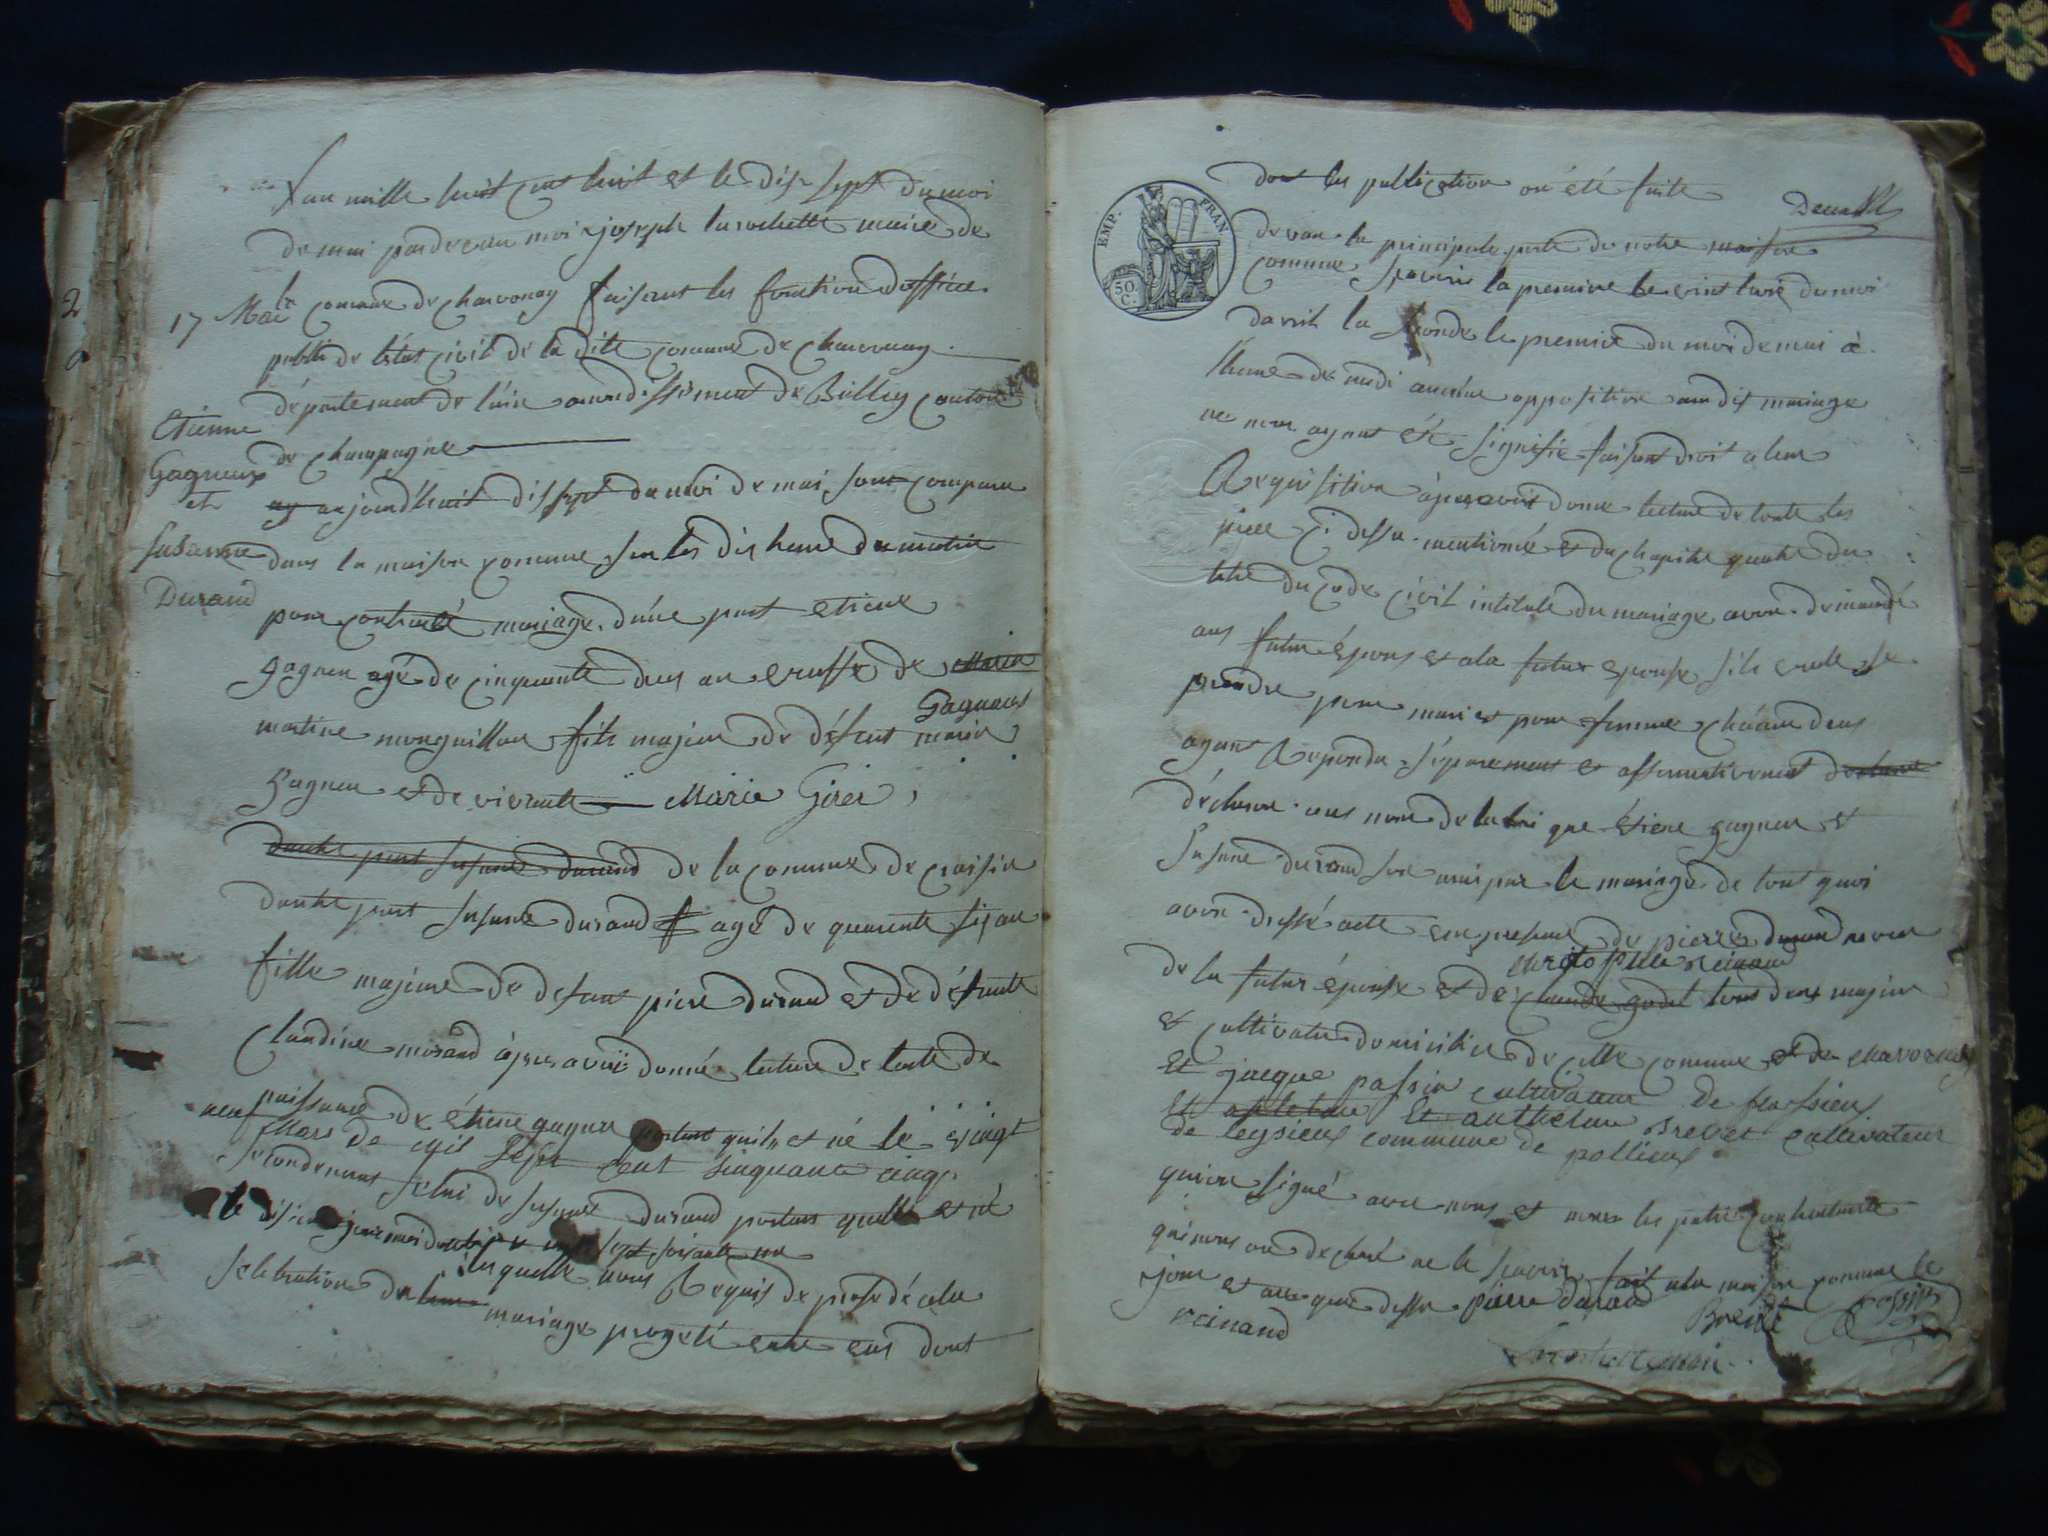 Lan mille huit cent huit et le dix sept du moi
de mai pardevan moi joseph larochette maire de
la comune de Charvonay faisant les fonction dofficier
17 Mai
public de létat civil de la dite comune de Charvonay
département de lain arondissement de Belley canton
de Champagne
Etienne
Gagneux
et
Susanne
Durand
aujourdhuit dis sept du moi de mai sont comparu
dans la maison comune sur les dix heure du matin
pour contracté mariage dune part etiene
gagneu agé de cinquante deus an veuffe de
martine monguillon fils majeur de défunt marin
Gagneux
gagneu et de vivente Marie Girer
dautre part susane durand de la comune de
dautre part susane durand agé de quarente six an
fille majeure de defunt piere durand et de défunte
Claudine morand àpres avoir donné lecture de lacte de
naissance de étiene gagneu portant quil et né le vingt
neuf Mars de mil sept cent sinquante cinq
secondement selui de susane durand portant quelle et né
le sept soisante un
lesquelle nous Requis de prosedé ala
selebration de leur mariage progeté entre eus dont
dont les publication on été faite
devan la principale porte de notre maison
comune scavoir la premiere le vint du moi
davril la segonde le premier du moi de mai à
lheure de midi aucune opposition audit mariage
ne nous ayant été signifié faisant droit a leur
Requisition àpres avoir donné lecture de toute les
piece ci dessu mentionné et du chapitre quatre du
titre du code civil intitulé du mariage avon demandé
aus futur épous et ala futur epouse sils veule se
prendre pour mari et pour femme chacun deus
ayant Repondu séparement et affirmativement
déclaron aus nom de la loi que étiene gagneu et
susane durand son uni par le mariage de tout quoi
avon dressé acte en presence de pierre durand neveu
Christophle reinand
de la futur épouse et de claude godet tous deux majeur
et cultivateur domicilié de cette comune de charvonay
Et jacque passin cultivateur De flassieu
Et Anthelme Brevet cultivateur
de leysieux commune de pollieux
quion signé avec nous et non les partie contractante
quinous on declaré ne le scavoir fait ala maison comune le
jour et an que dessu pierre durand Brevet Passin
reinand
EMP. FRAN
50 C.